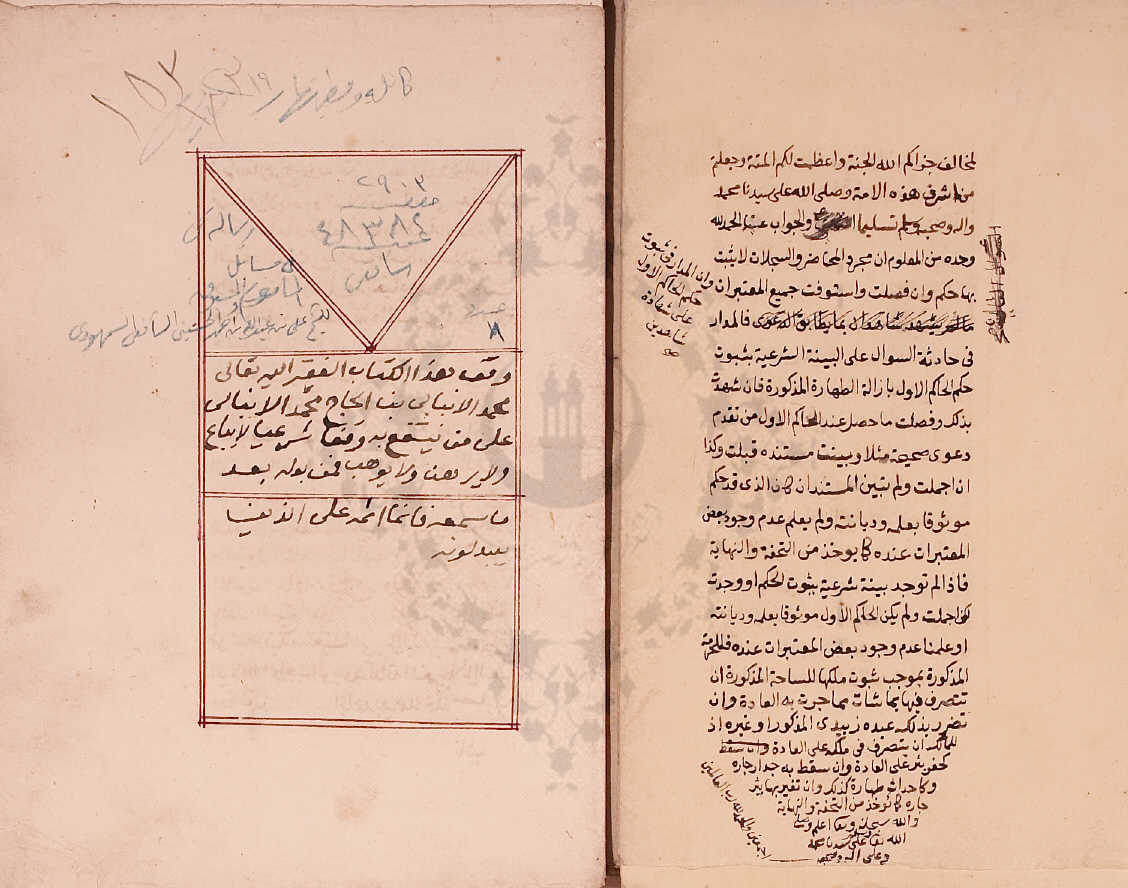 لمخالف جزاكم الله الجنة واعظمت لكم المنة وجعلتم
من اشرف هذه الامة وصلى الله على سيدنا محمد
واله وصحبه وسلم تسليما والجواب عنه الحمد لله
وحده من المعلوم ان مجرد المحاضر والسجلات لا يثبت
بها حكم وان فصلت واستوفت جميع المعتبرات
وان المدار في ثبوت
حكم الحاكم الاول
على شهادة
شاهدين
صح
فالمدار
في حادثة السوال على البينة الشرعية بثبوت
حكم الحاكم الاول بازالة الطهارة المذكورة فان شهدت
بذلك وفصلت ما حصل عند الحاكم الاول من تقدم
دعوى صحيحة مثلا وبينت مستنده قبلت وكذا
ان اجملت ولم تبين المستند ان كان الذى قد حكم
موثوقا بعلمه وديانته ولم يعلم عدم وجود بعض
المعتبرات عنده كما يوخذ من التحفة والنهاية
فاذا لم توجد بينة شرعية بثبوت الحكم او وجدت
لكن اجملت ولم يكن الحاكم الاول موثوقا بعلمه وديانته
او علمنا عدم وجود بعض المعتبرات عنده فللحرمة
المذكورة بموجب ثبوت ملكها للساحة المذكورة ان
تتصرف فيها بما شات مما جرت به العادة وان
تضرر بذلك عبده زبيدى المذكور او غيره اذ
للمالك ان يتصرف في ملكه على العادة
كحفر بئر على العادة وان سقط به جدار جاره
وكاحداث طهارة كذلك وان تغير بها بئر
جاره كما يوخذ من التحفة والنهاية
والله سبحانه وتعالى اعلم وصلى
الله على سيدنا محمد
وعلى اله وصحبه
اجمعين والحمد لله رب العالمين
٢٩٠٣
٤٨٣٨٤
رسالة
في مسائل
٨
وقف هذا الكتاب الفقير اليه تعالى
محمد الانبابى بن الحاج محمد الانبابى
على من ينتفع به وقفا شرعيا لا يباع
ولا يرهن ولا يوهب فمن بدله بعد
ما سمعه فانما اثمه على الذين
يبدلونه